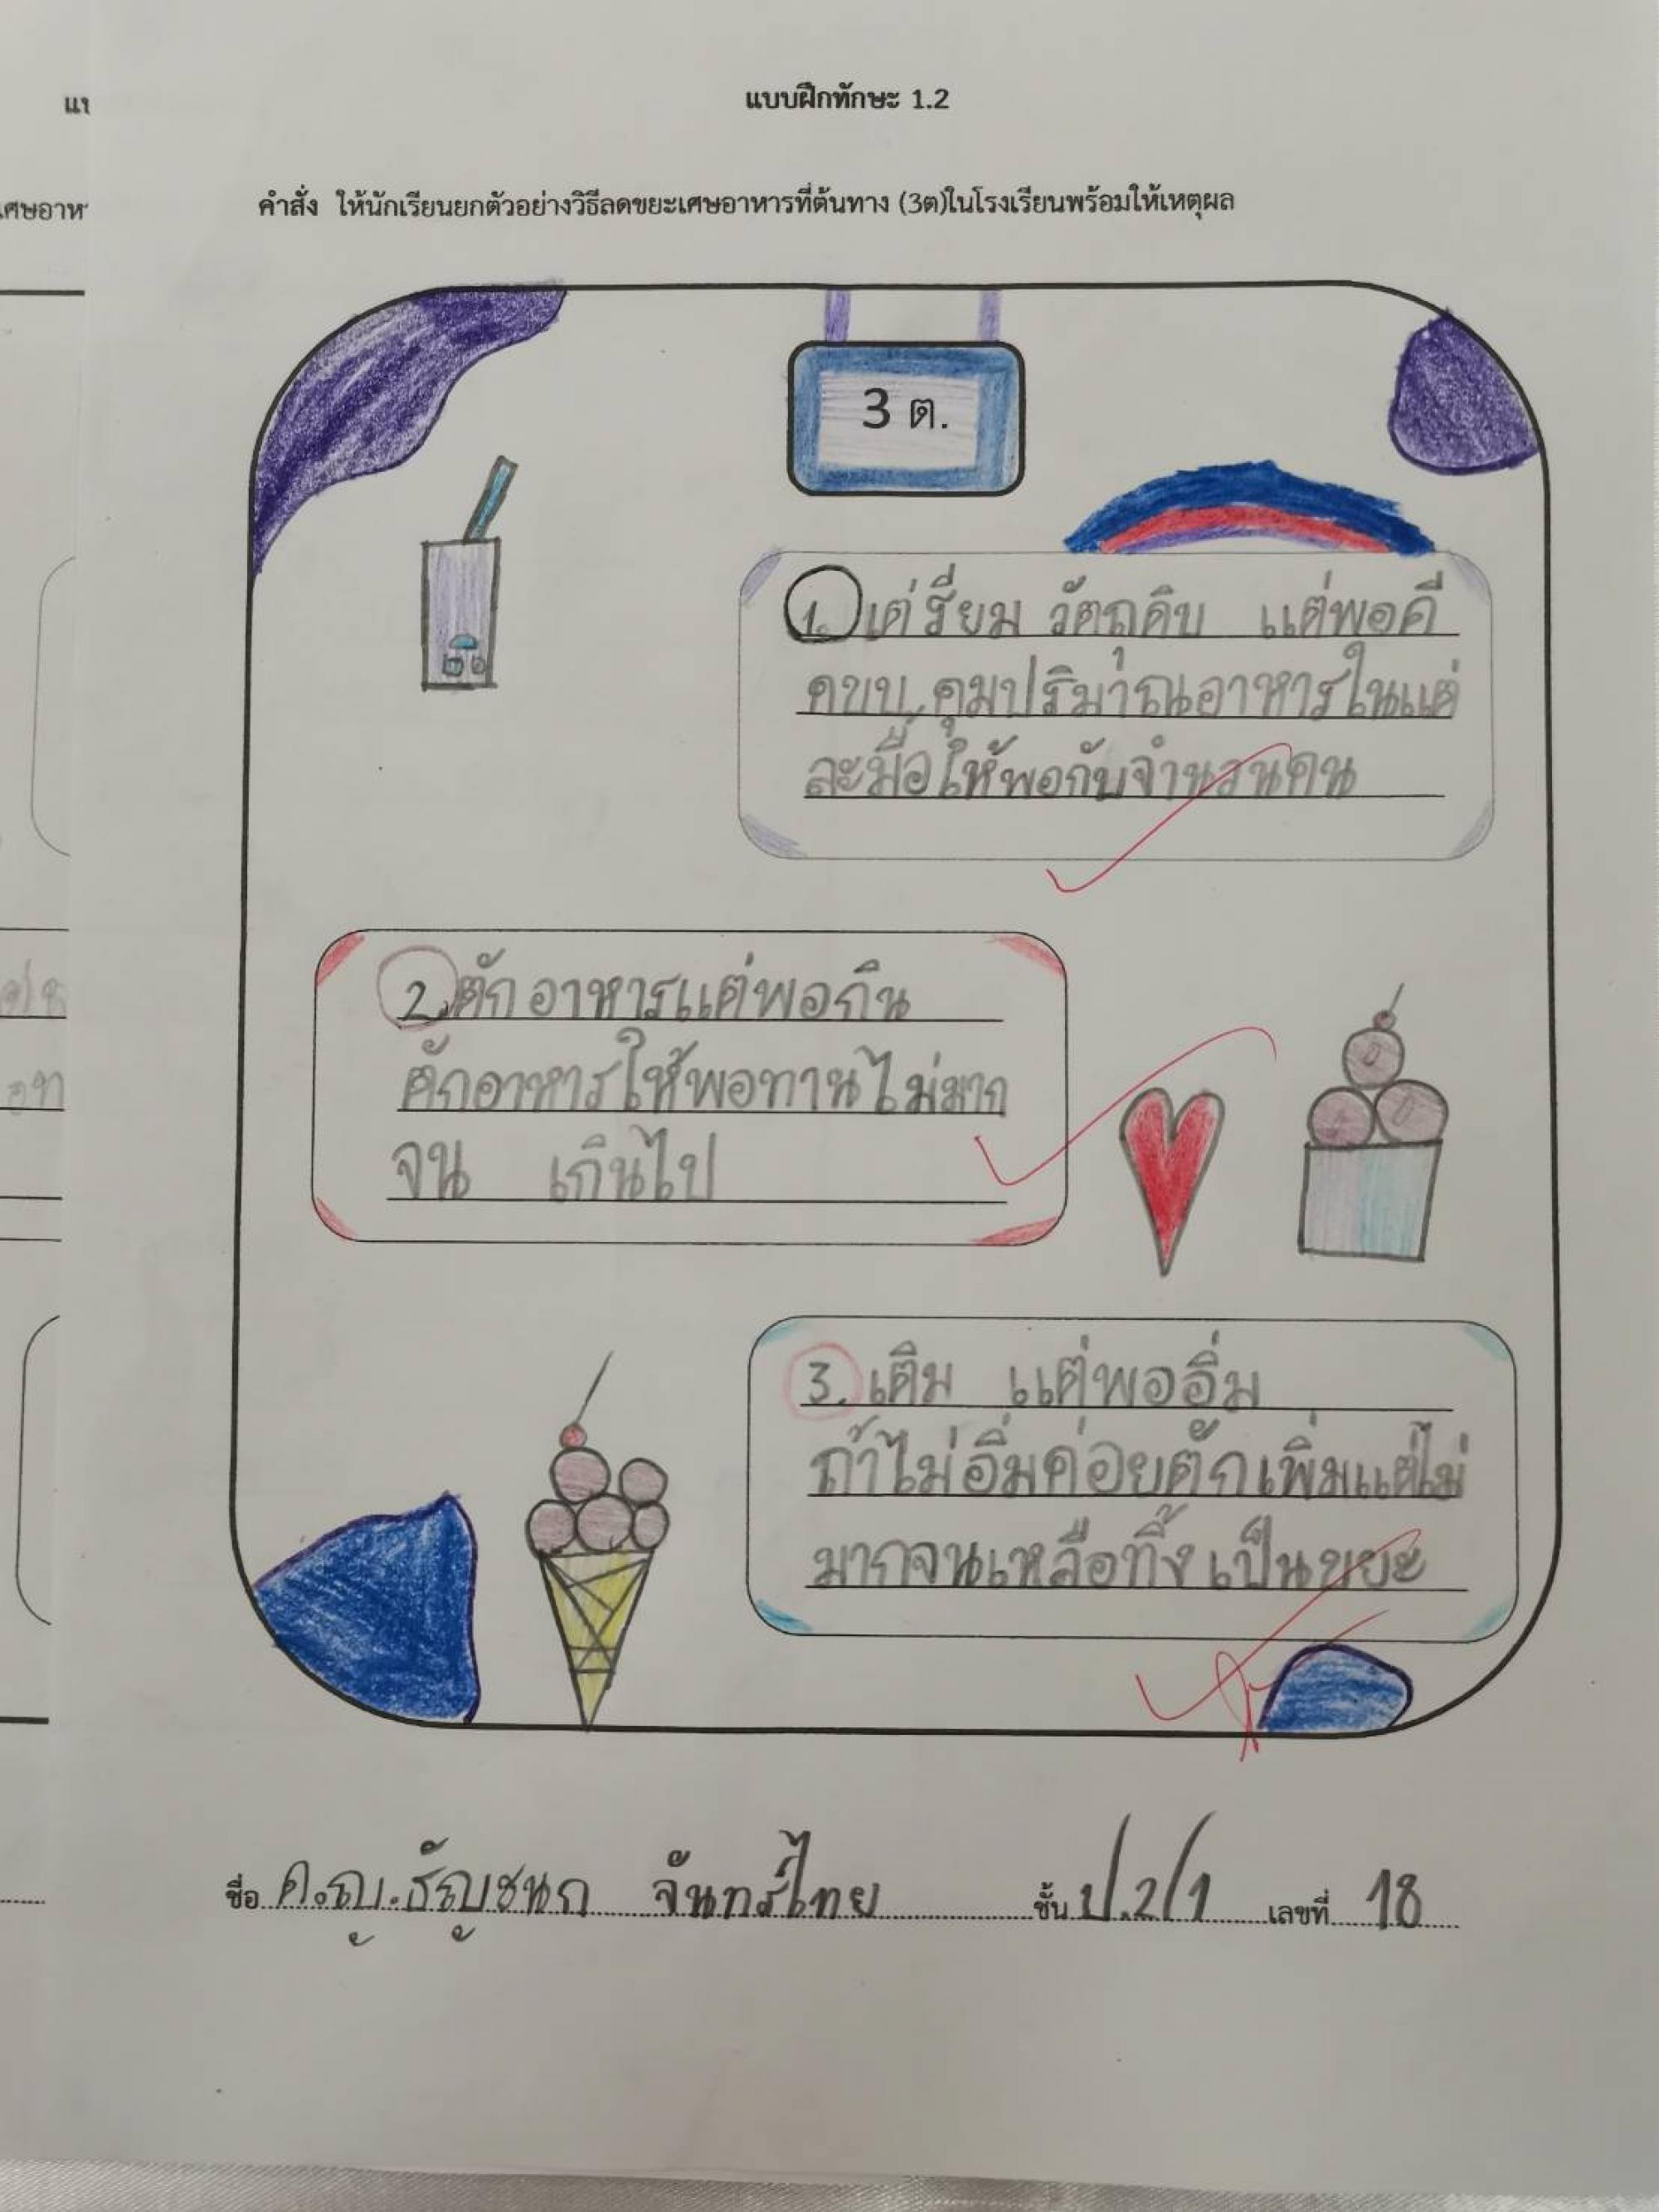 แบบฝึกทักษะ 1.2
คำสั่ง ให้นักเรียนยกตัวอย่างวิธีลดขยะเศษอาหารที่ต้นทาง (3ต)ในโรงเรียนพร้อมให้เหตุผล
3 ต.
1. เต่รียม วัตถุดิบ แต่พอดี
ควบคุมปริมาณอาหารในแต่
ละมื้อให้พอกับจำนวนคน
2. ตักอาหารแต่พอกิน
ตักอาหารให้พอทานไม่มาก
จน เกินไป
3. เติม แต่พออิ่ม
ถ้าไม่อิ่มค่อยตักเพิ่มแต่ไม่
มากจนเหลือทิ้งเป็นขยะ
ชื่อ ด.ญ.ธัญชนก จันทร์ไทย ชั้น ป.2/1 เลขที่ 18